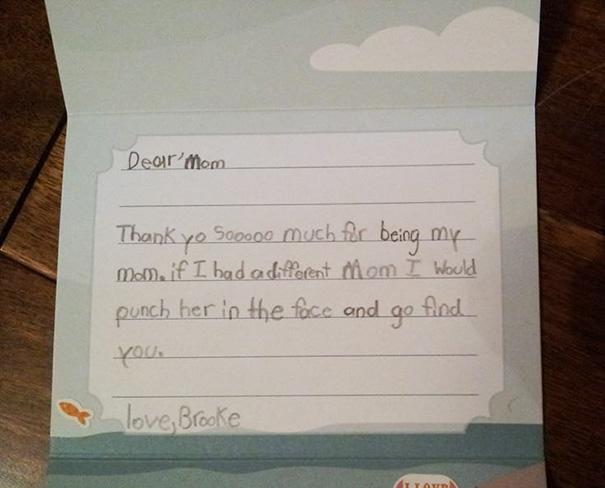 Dear'Mom
Thank yo Sooooo much for being my
mom. if I had a different Mom I Would
punch her in the face and go find
you.
love, Brooke
I LOVE